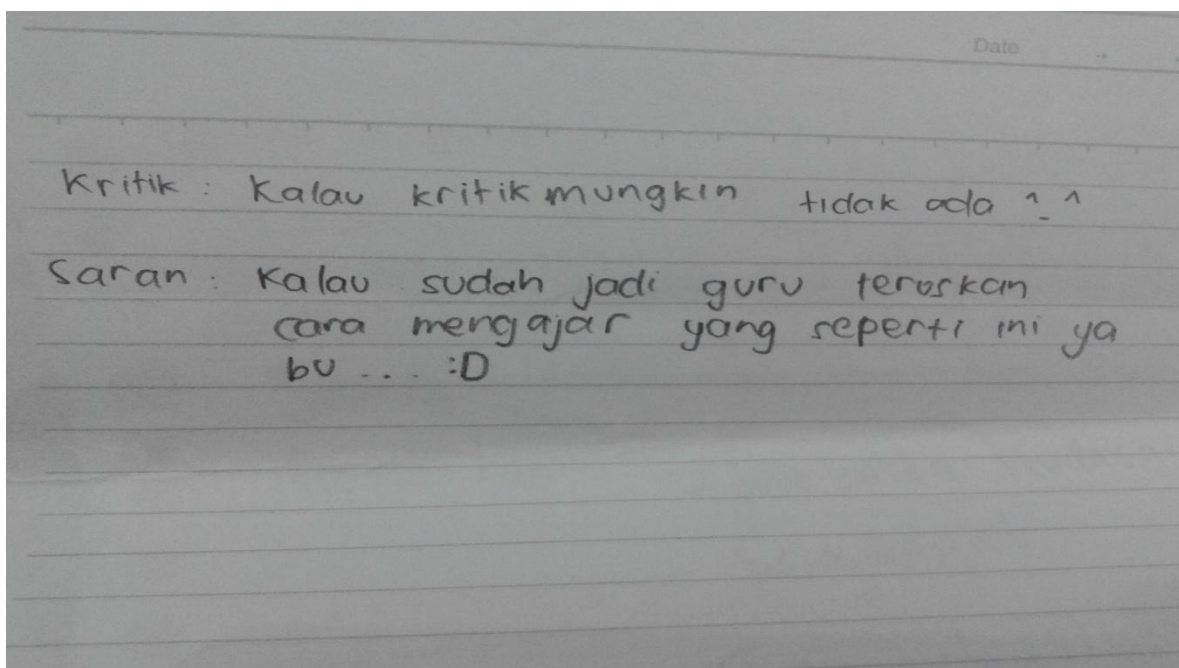 Date
Kritik : Kalau kritik mungkin tidak ada ^_^
Saran : Kalau sudah jadi guru teruskan
cara mengajar yang seperti ini ya
bu ... :D